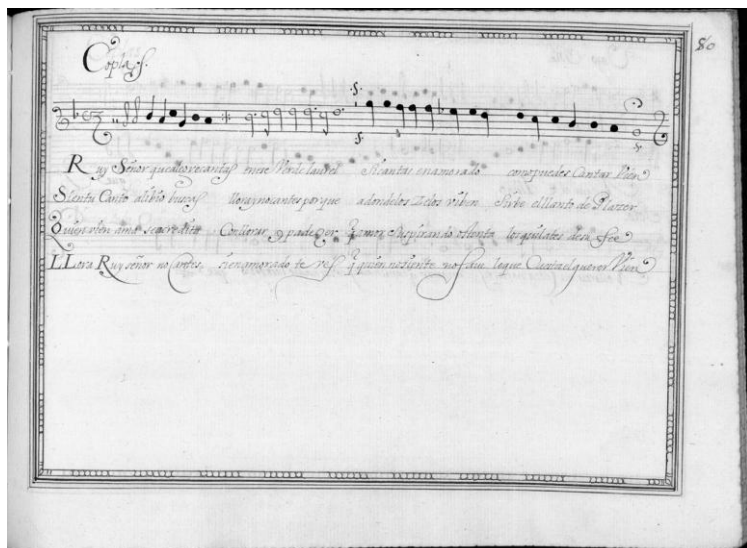 80
Coplas.
Ruy Señor que alegre cantas entre Verde laurel Si cantas enamorado como puedes Cantar bien
Si en tu Canto alibio buscas llora y no cantes porque adonde los Zelos viben Sirbe el llanto de Plazer
Quien vien ama se acredita Con llorar y padezer amor Suspirando ostenta los de fee
LLora Ruy señor no Cantes, si enamorado te ves q quien no siente no save lo que Cuesta el querer Vien